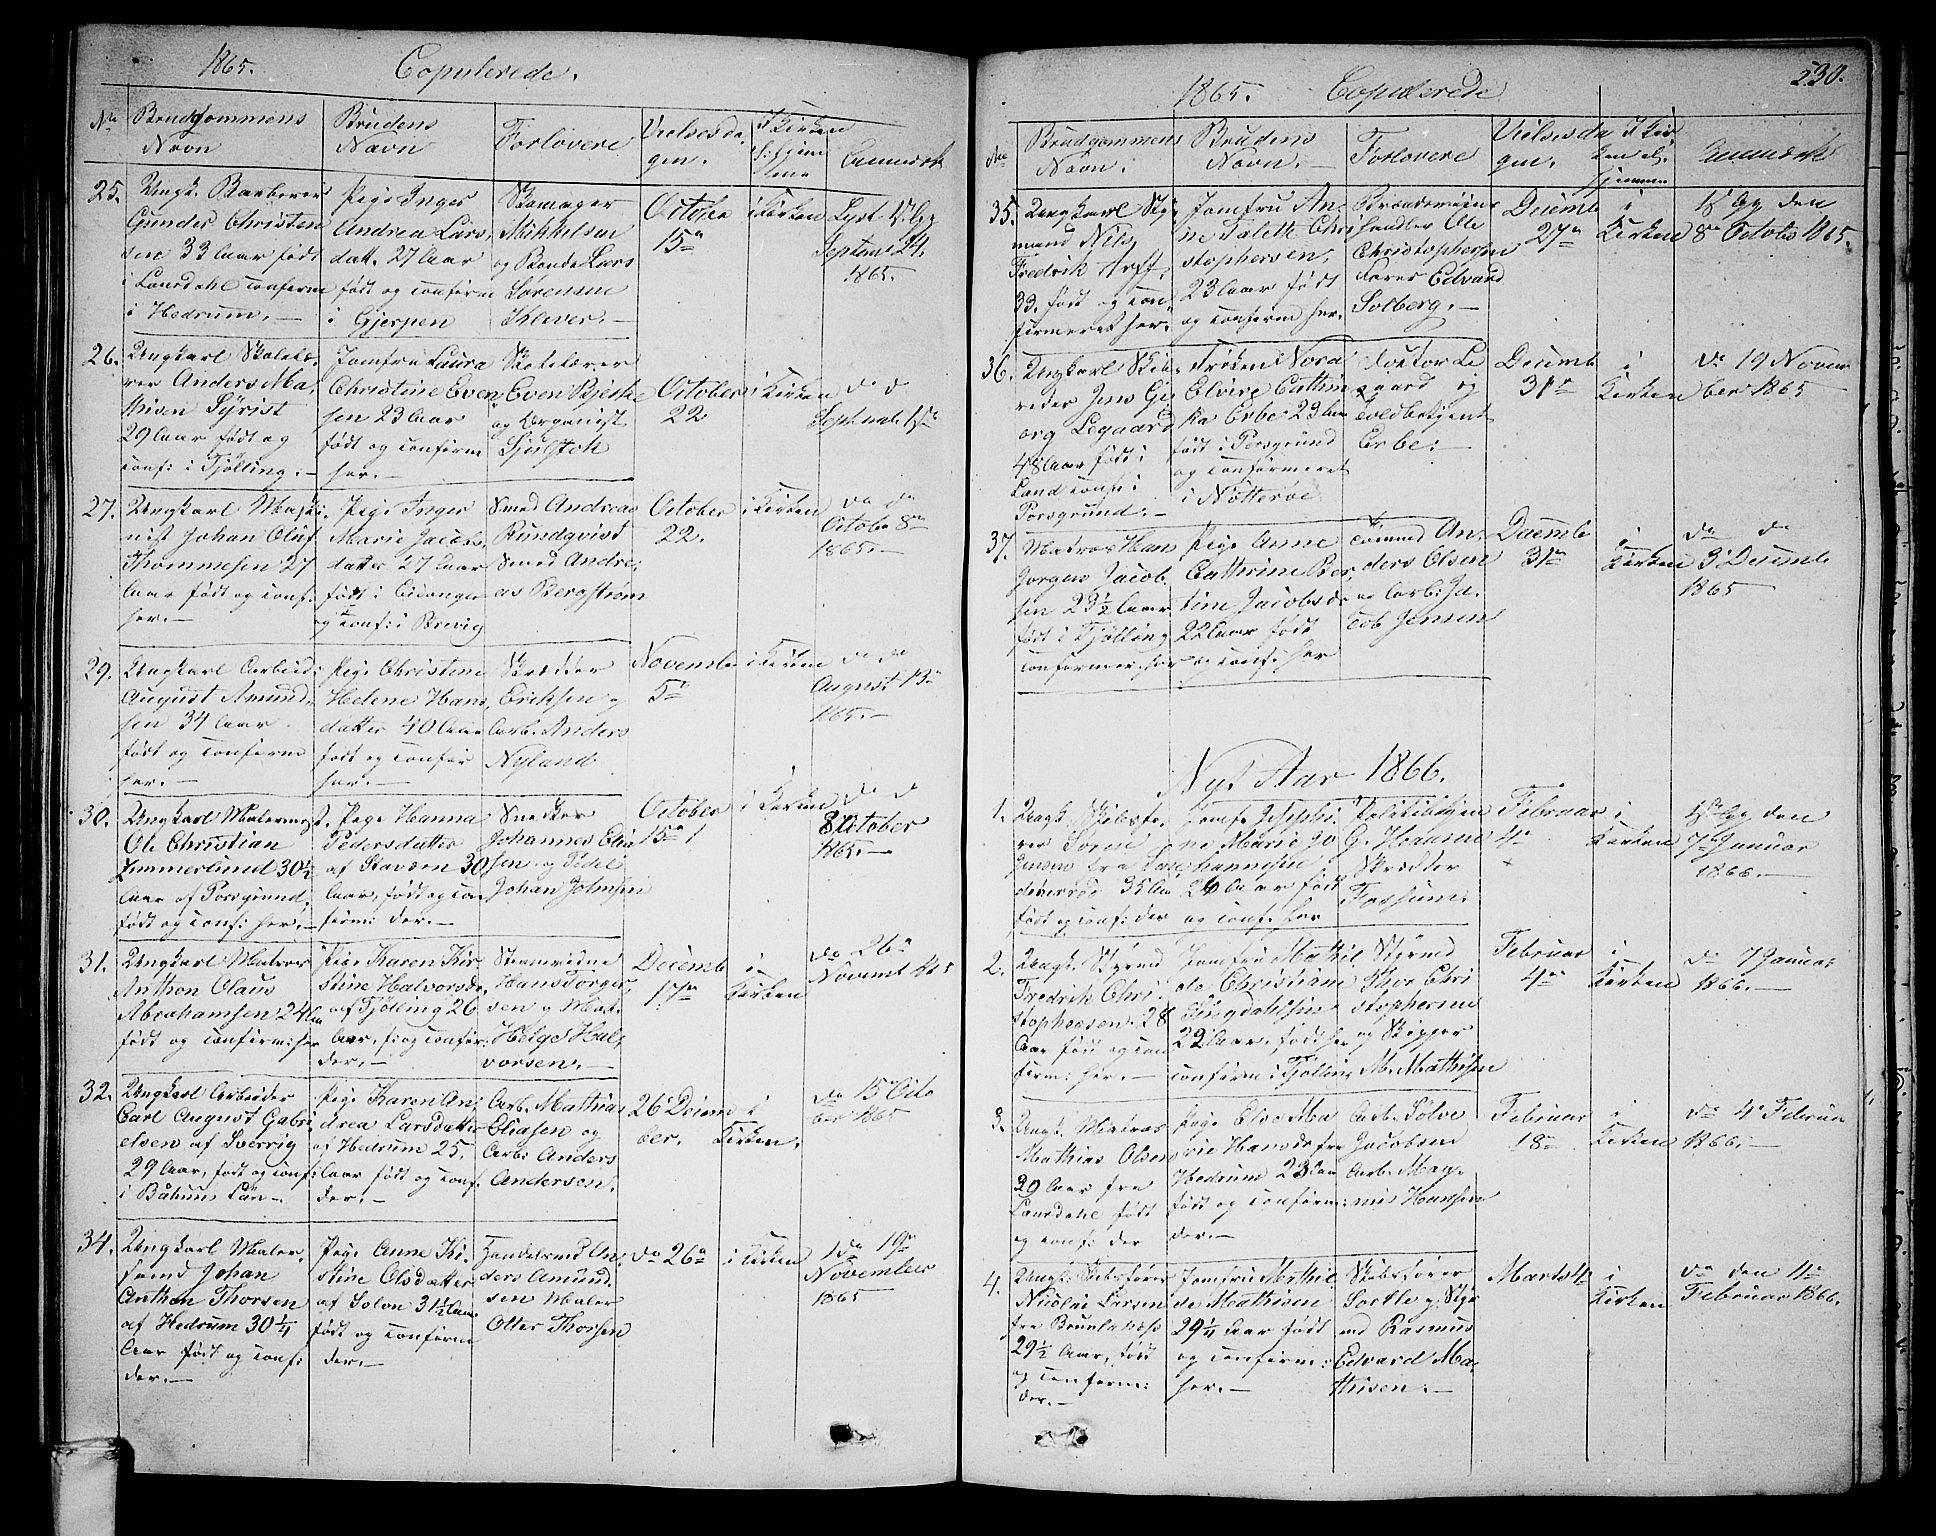 1865. Copulerede.
No
Brudgommens Navn
Brudens Navn
Forlovere
Vielsesdagen.
I Kirken
Anmerk
25. Ungk. Barberer
Gunder Christen
sen 33 Aar født
i Laurdahl confirm
i Hedrum. –
Pige Inger
Andrea Lars
datt. 27 Aar
født og confirm
i Gjerpen
Skomager
Mikkelsen
og Bonde Lars
Sørensen
Klever. –
October
15de
i Kirken
Lyst 1 Gg
Septem 24
1865.
26. Ungkarl Skolelæ
rer Anders Ma
thisen Syrist
29 Aar født og
conf: i Tjølling. –
Jomfru Laura
Christine Even
sen 23 Aar
født og confirm
her. –
Skolelærer
Even
og Organist
October
22
i Kirken
do do
27. Ungkarl Maski
nist Johan Oluf
Thommesen 27
Aar født og conf:
her. –
Pige Inger
Marie Jacobs
datter 27 Aar
født i Eidanger
og conf: i Brevig
Smed Andreas
Rundqvist
Smed Andre
as Bergstrøm
October
22.
i Kirken
do do
Octobe 8de
1865. –
29. Ungkarl Arbeid:
August Amund
sen 34 Aar
født og confirm
her. –
Pige Christine
Helene Hans
datter 40 Aar
født og confir
her. –
Skrædder
Eriksen og
Arb. Anders
Nyland
Novembe
5te
i Kirken
do do
August 13de
1865. –
30. Ungkarl
Ole Christian
Zimmerlund 30½
Aar af Porsgrund,
født og conf: her. –
Pige Hanna
Pedersdatter
af Staværn 30
Aar, født og con
firm: der. –
Snedker
Johannes
sen og Pedel
Johan Johnsen
October
15de 1
i Kirken
do do
8 October
1865. –
31. Ungkarl Matros
Anthon Olaus
Abrahamsen 24 Aar
født og confirm: her
Pige Karen Kir
stine Halvorsdr
af Tjølling 26
Aar, f: og confir:
der. –
Hans Torger
sen og Mat.
Helge Hal
vorsen. –
Decemb
17de
i
Kirken
do 26de
32. Ungkarl Arbeider
Carl August Gabri
elsen af Sverrig
29 Aar, født og conf:
i Båhuus Län –
Pige Karen An
drea Larsdatter
af Hedrum 25.
Aar født og conf.
der. –
Arb. Mathias
Eliasen og
Arb: Anders
Andersen.
26 Decem
ber.
i
Kirken.
do 15de Octo
ber 1865
34. Ungkarl Maler
svend Johan
Anthon Thorsen
af Hedrum 30¼
Aar født og conf:
der. –
Pige Anne Ki
stine Olsdatter
af Solon 31½ Aar
født og confirm
der. –
Handelsmd An
ders Amund
sen Maler
Otter Thorsen
do 26de
i Kirken
do 19de
November
1865
1865. Copulerede
230.
No
Brudgommens Navn.
Brudens Navn. –
Forlovere
Vielsesda
gen.
I Kir
ken el.
hjemme
Anmærk
35. Ungkarl Sty
mand Nils
Fredrik
33. født og con
firmeret her.
Jomfru An
ne Talette Chri
stophersen,
23 Aar født
og confirm her.
Brændeviins
handler Ole
Christophersen
Farver Edvard
Solberg. –
Decemb
27de
i
Kirken
1ste Gg den
8de Octob 1865.
36. Ungkarl Skib
reder Jens Ge
org Legaard
48 Aar født i
Land conf: i
Porsgrund. –
Frøken Nora
Elvire Cathin
ka Erbe 23 Aar
født i Porsgrund
og confirmeret
i Nøtterøe
Doctor Le
gaard og
Toldbetjent
Erbe. –
Decemb
31te
i
Kirken
do 19 Novem
ber 1865
37. Matros Han
Jørgen Jacob
sen 23½ Aar
født i Tjølling
confirmer. her
Pige Anne
Cathrine Ber
tine Jacobsdr
22 Aar født
og conf: her
Tømmd An
ders Olsen
og Arb: Ja
cob Jensen
Decembe
31te
i
Kirken
do do
3 Decemb
1865
Nyt Aar 1866.
1. Ungk. Skibsfø
rer Søren
Jensen fra
35 Aar
født og conf: der
Jomf Josephi
ne Marie Jo
hannesen
26 Aar født
og conf: her
G.
Skrædder
Fossum.
Februar
4de
i
Kirken
1ste Gg den
7de Januar
1866. –
2. Ungk. Styrmd
Fredrik Chri
stophersen 28
Aar født og con
firm: her. –
Jomfru Mathil
de Christiane
22 Aar, født her
confirm i Tjølling
Styrmd
Thor Chri
stophersen
og Skipper
M. Mathisen
Februar
4de
i
Kirken
do 7 Januar
1866. –
3. Ungk. Matros
Mathias Olsen
29 Aar fra
Laurdahl født
og conf: der
Pige Else Ma
rie Hansdr fra
Hedrum 23 Aar
født og confirm:
der. –
Arb. Sølve
Jacobsen
Arb. Mag
nus Hansen
Februar
18de
i
Kirken
do 4de Februar
1866. –
4. Ungk: Skibsfører
Nicolai Larsen
fra Brunlanæs
29½ Aar, født
og confirm:
der. –
Jomfru Mathil
de Mathisen
29¼ Aar født
og confirm:
her. –
Skibsfører
Sortle og Styr
md Rasmus
Edvard Ma
thisen. –
Marts 4de
i
Kirken
do den 11te
Februar 1866.